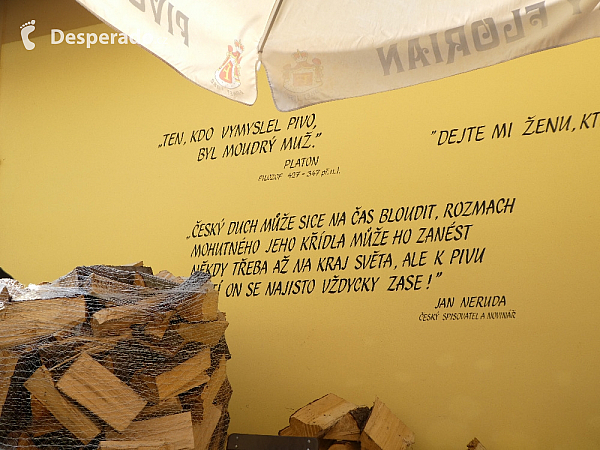 Desperad
PIVO
Y FLORIAN
„TEN, KDO VYMYSLEL PIVO,
BYL MOUDRÝ MUŽ.”
PLATON
FILOZOF 427 - 347 př.n.l.
"DEJTE MI ŽENU, KT
„ČESKÝ DUCH MŮŽE SICE NA ČAS BLOUDIT, ROZMACH
MOHUTNÉHO JEHO KŘÍDLA MŮŽE HO ZANÉST
NĚKDY TŘEBA AŽ NA KRAJ SVĚTA, ALE K PIVU
ON SE NAJISTO VŽDYCKY ZASE!”
JAN NERUDA
ČESKÝ SPISOVATEL A NOVINÁŘ